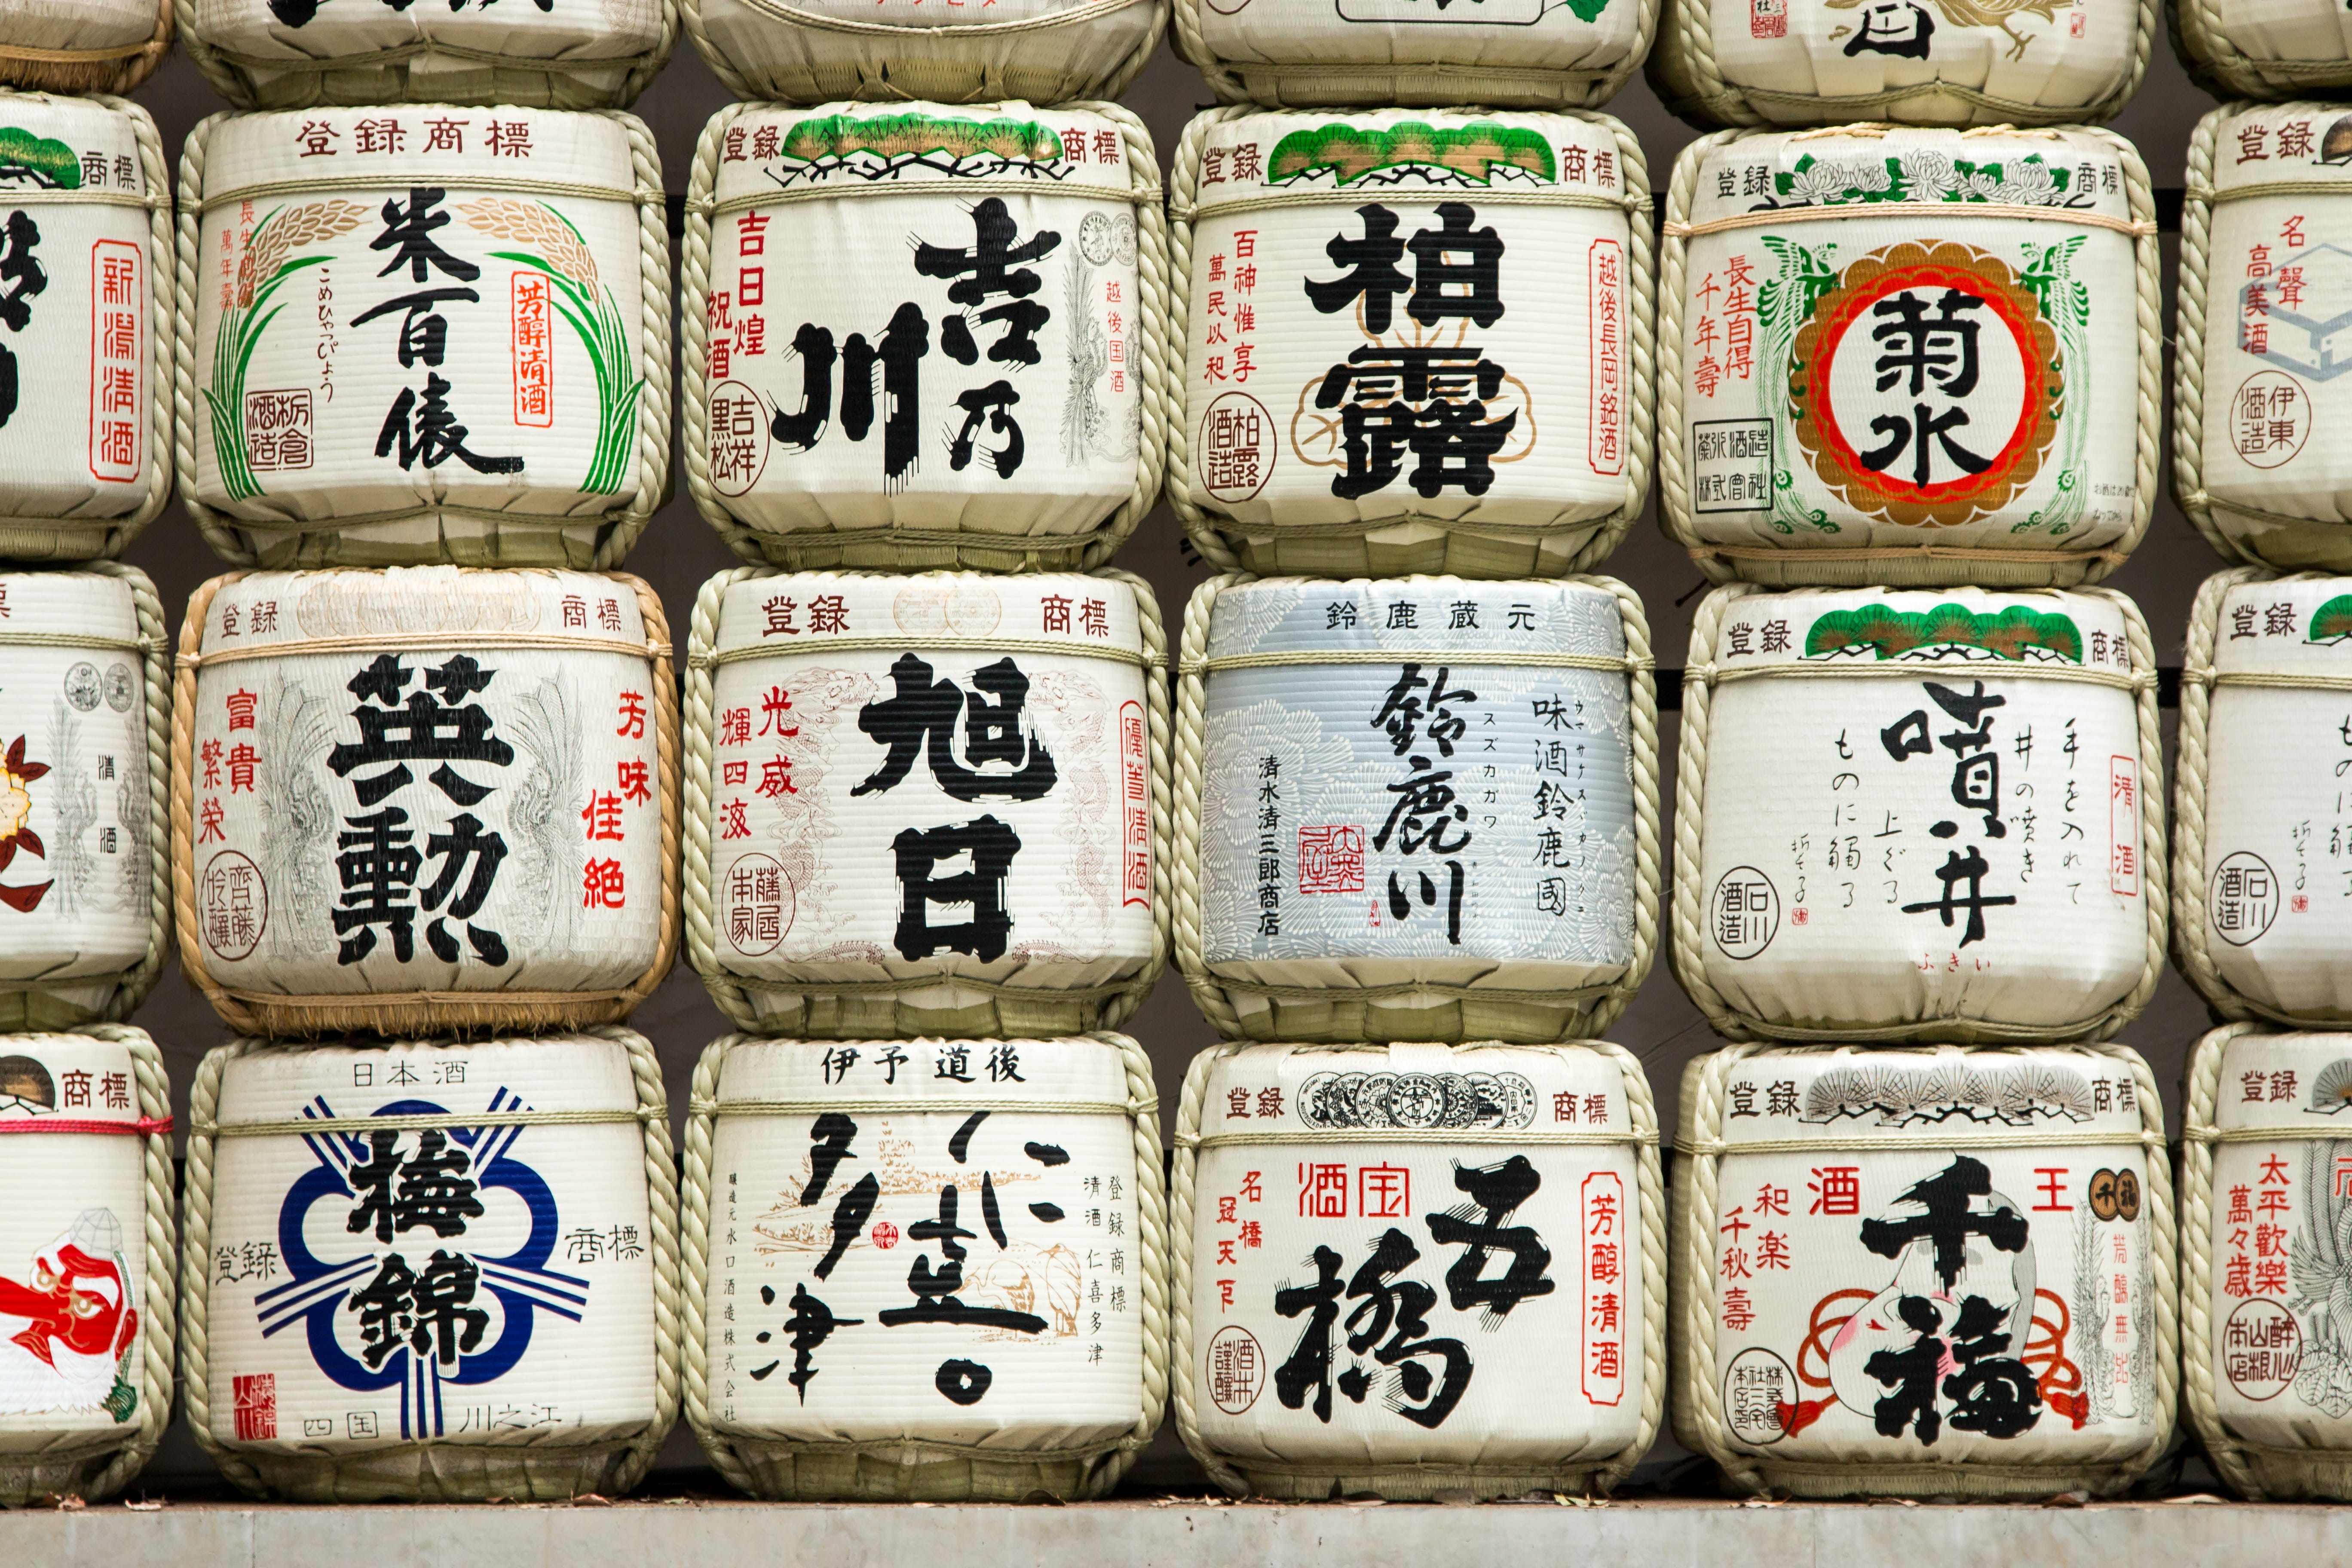 登録商標
米百俵
こめひゃっぴょう
芳醇清酒
長生
萬年壽
栃倉酒造
登録 商標
吉乃川
越後国酒
吉日煌
祝酒
吉祥黒松
登録 商標
柏露
越後長岡銘酒
百神惟享
萬民以和
柏露酒造
登録 商標
菊水
長生自得
千年壽
菊水酒造株式會社
登録
名聲
高美酒
伊東酒造
商標
新潟清酒
清酒
登録 商標
英勲
芳味佳絶
富貴
繁榮
齊藤吟釀
登録 商標
旭日
優等清酒
光威
輝四海
藤居本家
鈴鹿蔵元
味酒鈴鹿國
ウマサケスズカノクニ
鈴鹿川
スズカガワ
清水清三郎商店
登録 商標
清酒
手を入れて
井の噴き
噴井
ふきい
上ぐる
ものに觸る
石川酒造
登録
石川酒造
商標
日本酒
梅錦
登録 商標
四国 川之江
梅錦山川
伊予道後
仁喜多津
登録商標
清酒 仁喜多津
醸造元水口酒造株式会社
登録 商標
五橋
宝酒
芳醇清酒
名橋
冠天下
酒本謹釀
登録 商標
千福
千福
王
酒
芳醇無比
和楽
千秋壽
登録
太平歡樂
萬々歳
醉心山根本店